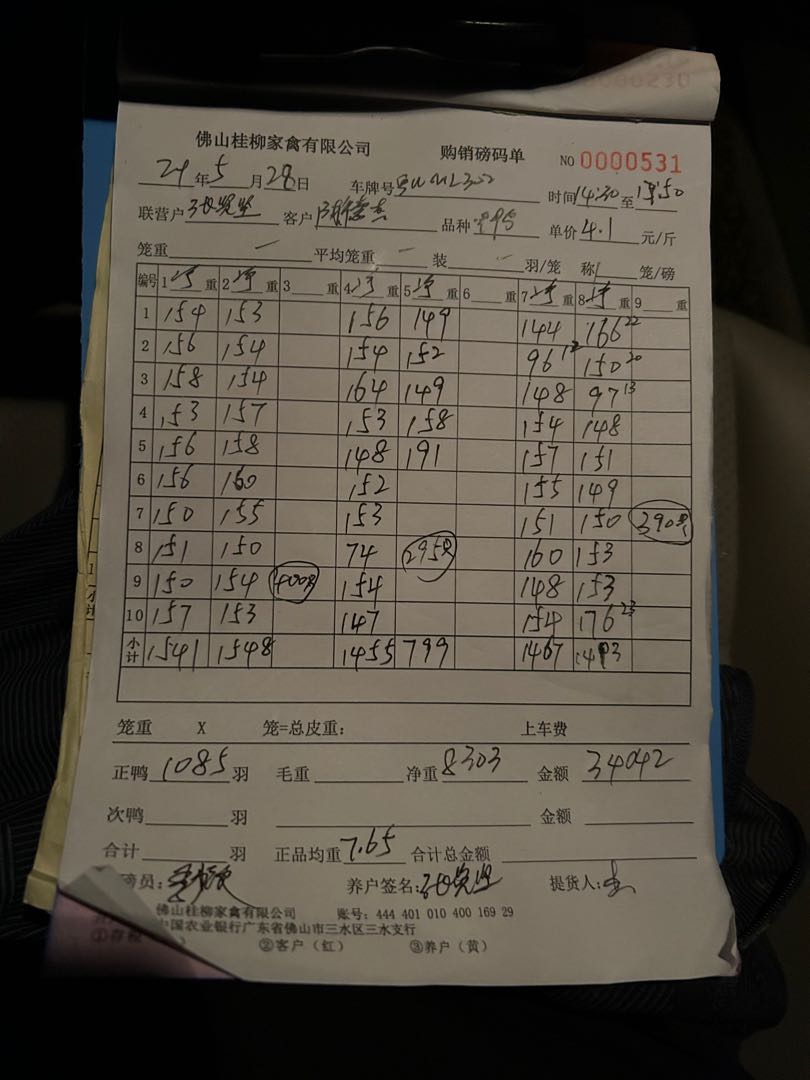 佛山桂柳家禽有限公司 购销磅码单 NO 0000531
24年5月28日 车牌号 时间14:30至15:50
联营户 客户 品种 单价4.1元/斤
笼重 — 平均笼重 — 装 — 羽/笼 称/ 笼/磅
编号 1净重 2净重 3 重 4净重 5净重 6 重 7净重 8净重 9 重
1 154 153 156 149 144 166 22
2 156 154 154 152 96 12 150 20
3 158 154 164 149 148 97 13
4 153 157 153 158 154 148
5 156 158 148 191 157 151
6 156 160 152 155 149
7 150 155 153 151 150 390只
8 151 150 74 295只 160 153
9 150 154 400只 154 148 153
10 157 153 147 154 176 23
小计 1541 1548 1455 799 1467 1493
笼重 X 笼=总皮重: 上车费
正鸭1085羽 毛重 净重8303 金额34042
次鸭 羽 金额
合计 羽 正品均重7.65 合计总金额
磅员: 养户签名: 提货人:
佛山桂柳家禽有限公司 账号: 444 401 010 400 169 29
中国农业银行广东省佛山市三水区三水支行
①存根 ②客户(红) ③养户(黄)